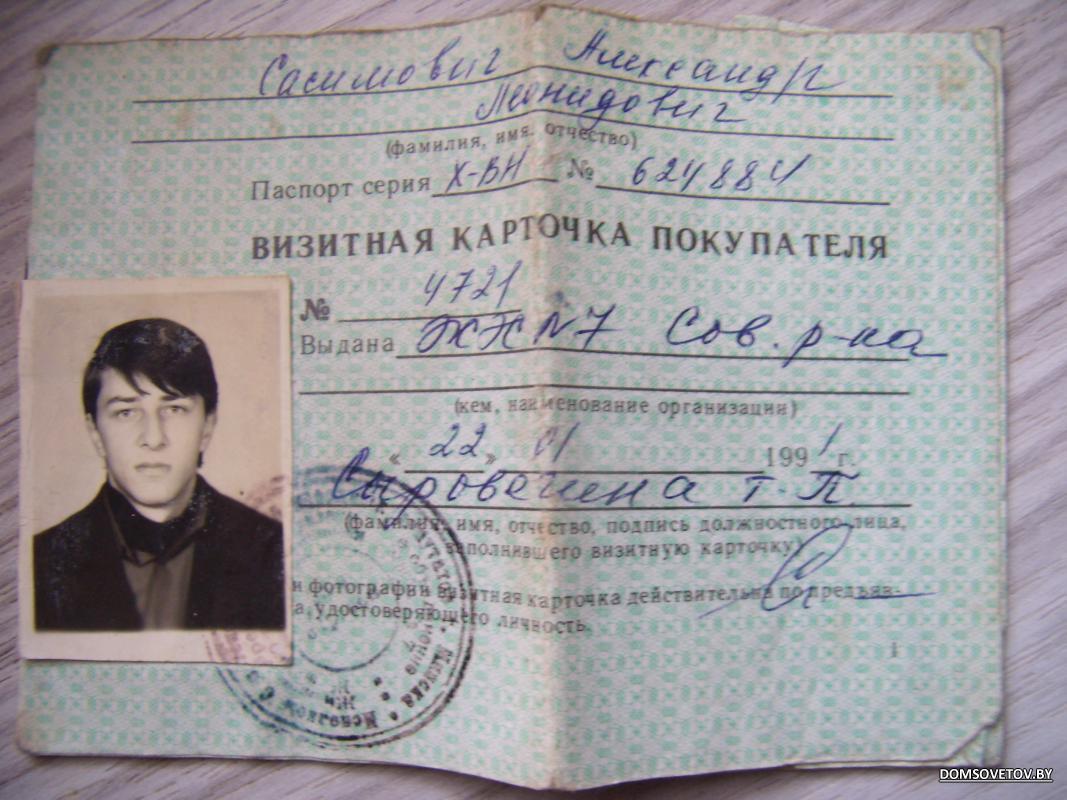 Сасимович Александр
Леонидович
(фамилия, имя, отчество)
Паспорт серия X-ВН № 624884
ВИЗИТНАЯ КАРТОЧКА ПОКУПАТЕЛЯ
№ 4721
Выдана ЖЭК N7 Сов. р-на
(кем, наименование организации)
« 22 » 01 1991 г.
Т.П.
(фамилия, имя, отчество, подпись должностного лица,
заполнившего визитную карточку)
и фотографии визитная карточка действительна по предъяв-
а, удостоверяющего личность.
Минска
1
DOMSOVETOV.BY